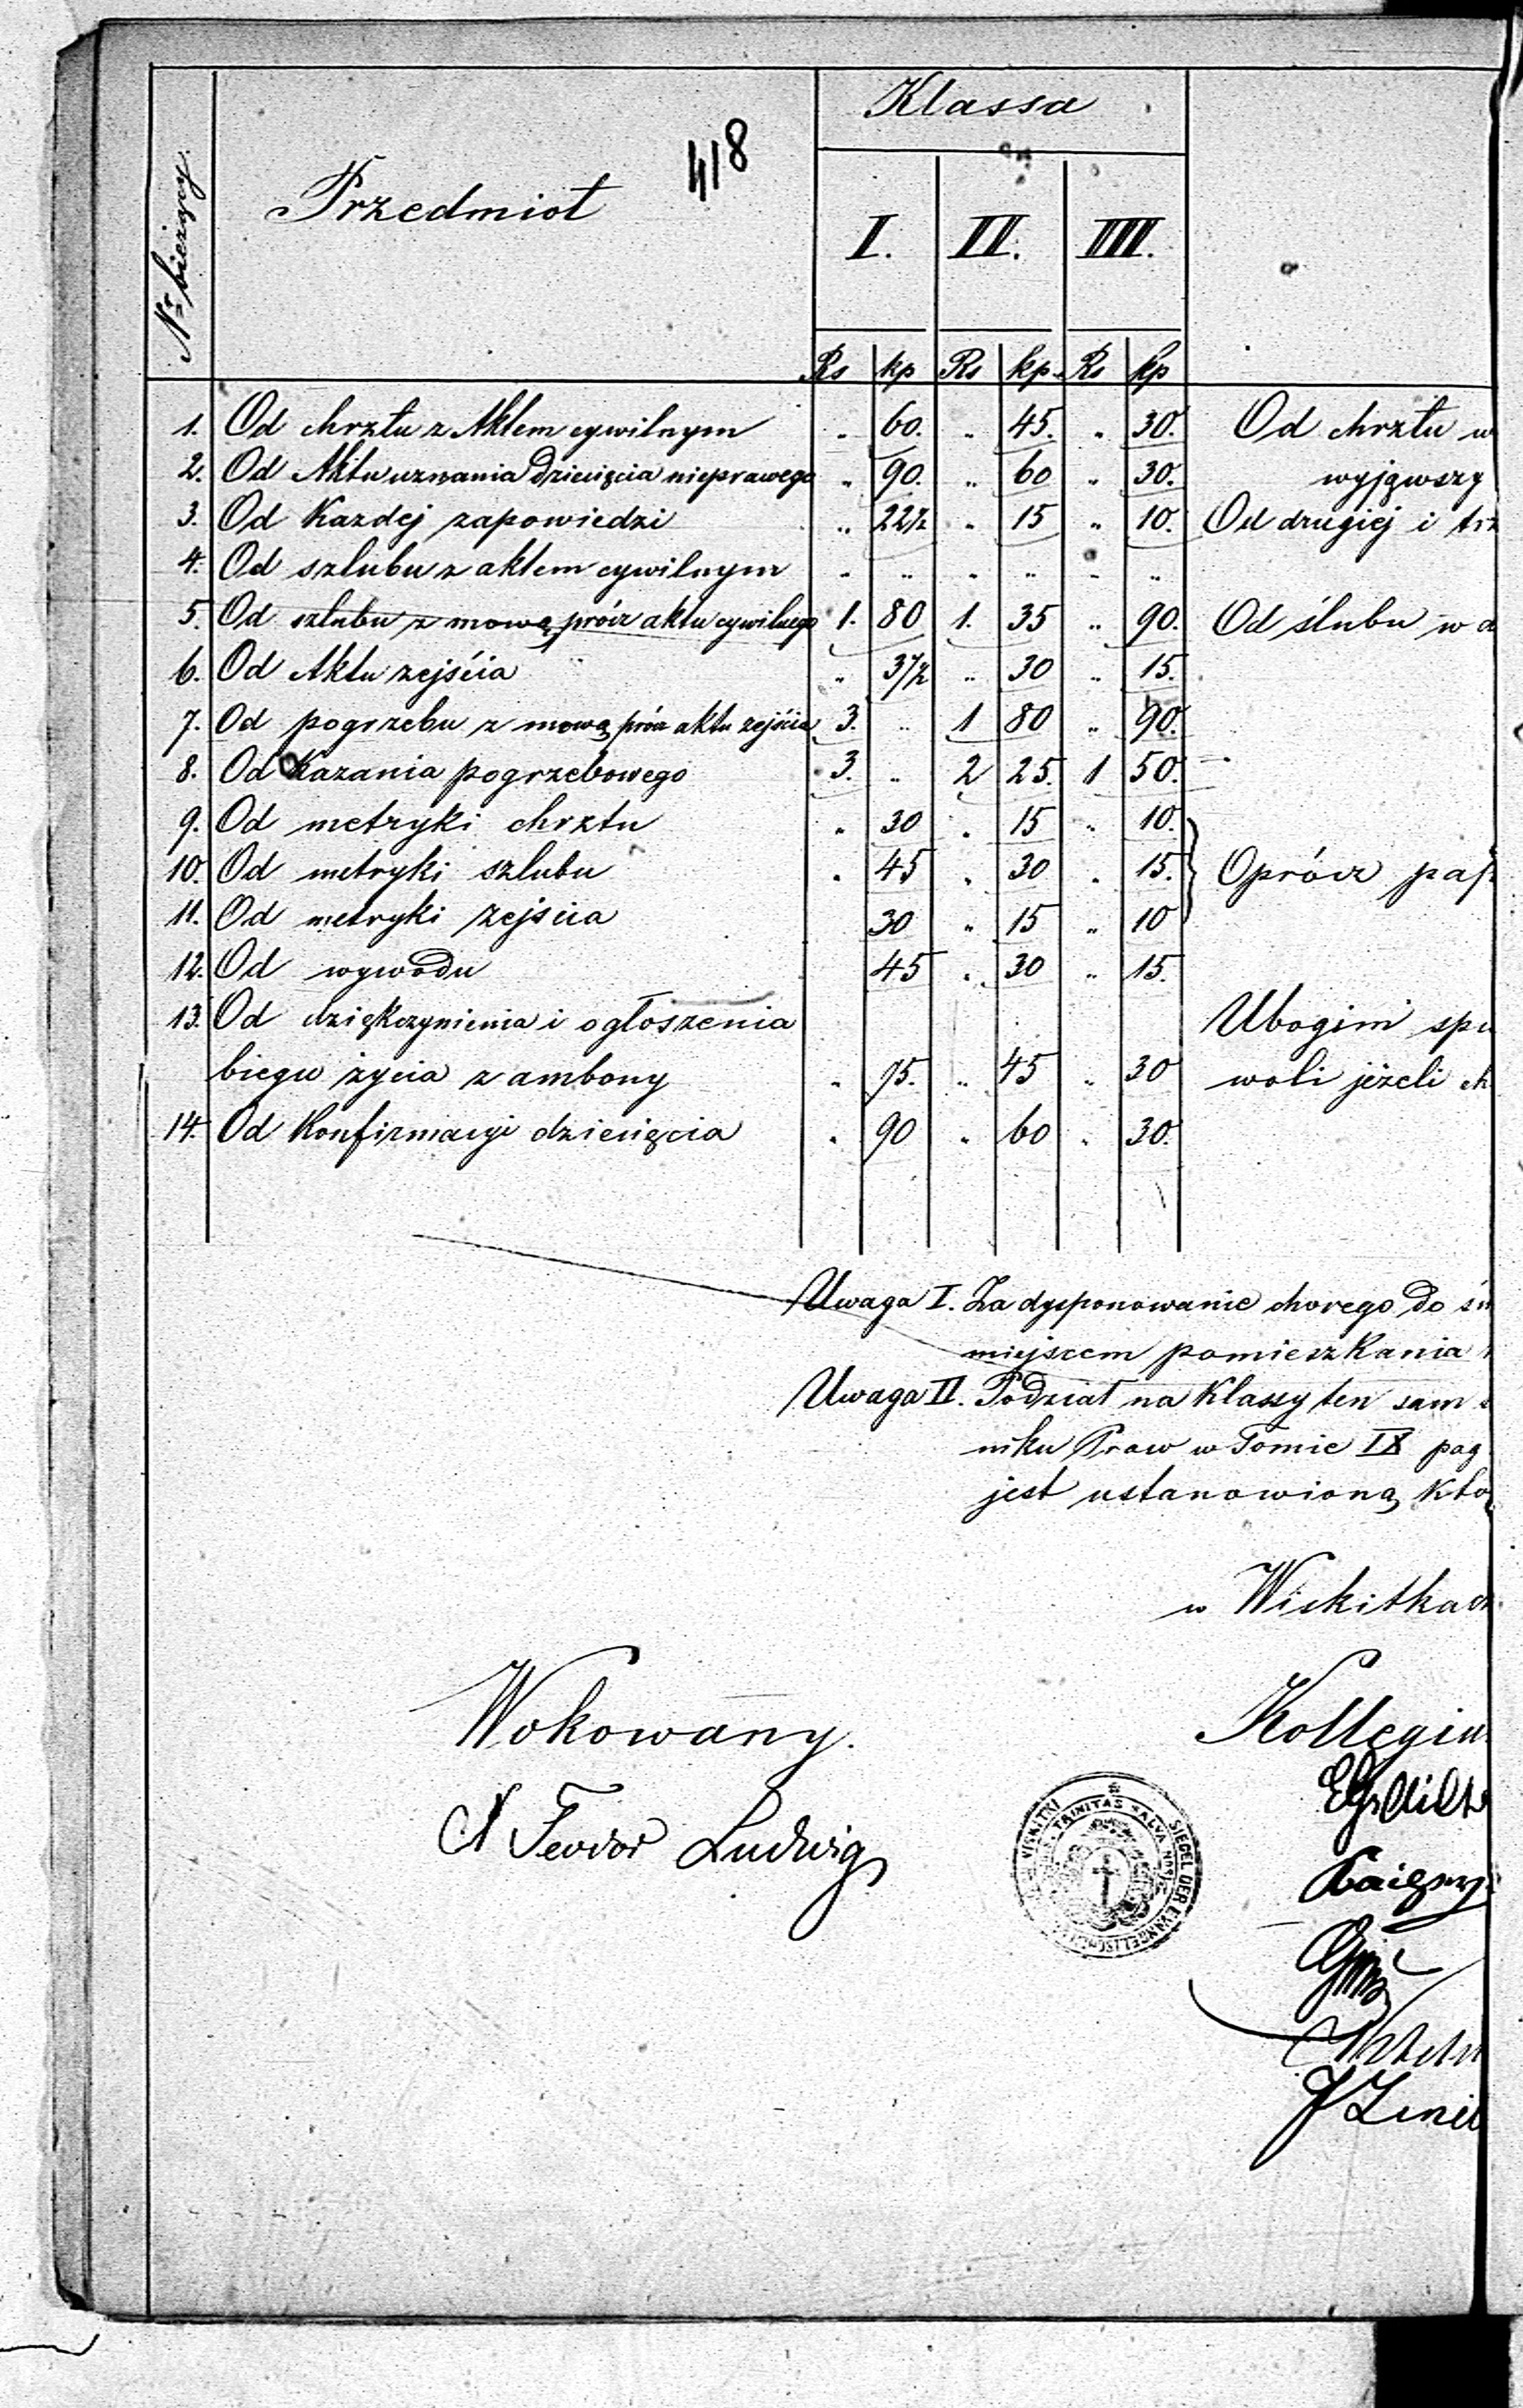 418
Nr bieżący.
Przedmiot
Klassa
I. II. III.
Rs kp Rs kp. Rs kp
1. Od chrztu z Aktem cywilnym " 60. " 45. " 30. Od chrztu w
2. Od Aktu uznania dziecięcia nieprawego " 90. " 60 " 30. wyjąwszy
3. Od Kazdej zapowiedzi " 22½ " 15 " 10. Od drugiej i trz
4. Od szlubu z aktem cywilnym " " " " " "
5. Od szlubu z mową prócz aktu cywilnego 1. 80 1. 35 " 90. Od ślubu w d
6. Od Aktu zejścia " 37½ " 30 " 15.
7. Od pogrzebu z mową prócz aktu zejścia 3. " 1 80 " 90.
8. Od Kazania pogrzebowego 3. " 2 25. 1 50.
9. Od metryki chrztu " 30 " 15 " 10.
10. Od metryki szlubu " 45 " 30 " 15. Oprócz pap
11. Od metryki zejścia 30 " 15 " 10
12. Od wywodu 45 " 30 " 15.
13. Od dziękczynienia i ogłoszenia Ubogim spu
biegu życia z ambony " 75. " 45 " 30 woli jeżeli ch
14. Od Konfirmacyi dziecięcia " 90 " 60 " 30.
Uwaga I. Za dysponowanie chorego do św
miejscem pomieszkania
Uwaga II. Podział na Klassy ten sam
niku Praw w Tomie IX pag.
jest ustanowioną Któ
w Wiskitkach
Wokowany. Kollegiu
Feodor Ludwig
SIEGEL DER EVANGELISCHEN
WISKITKI
TRINITAS SALVA NOS